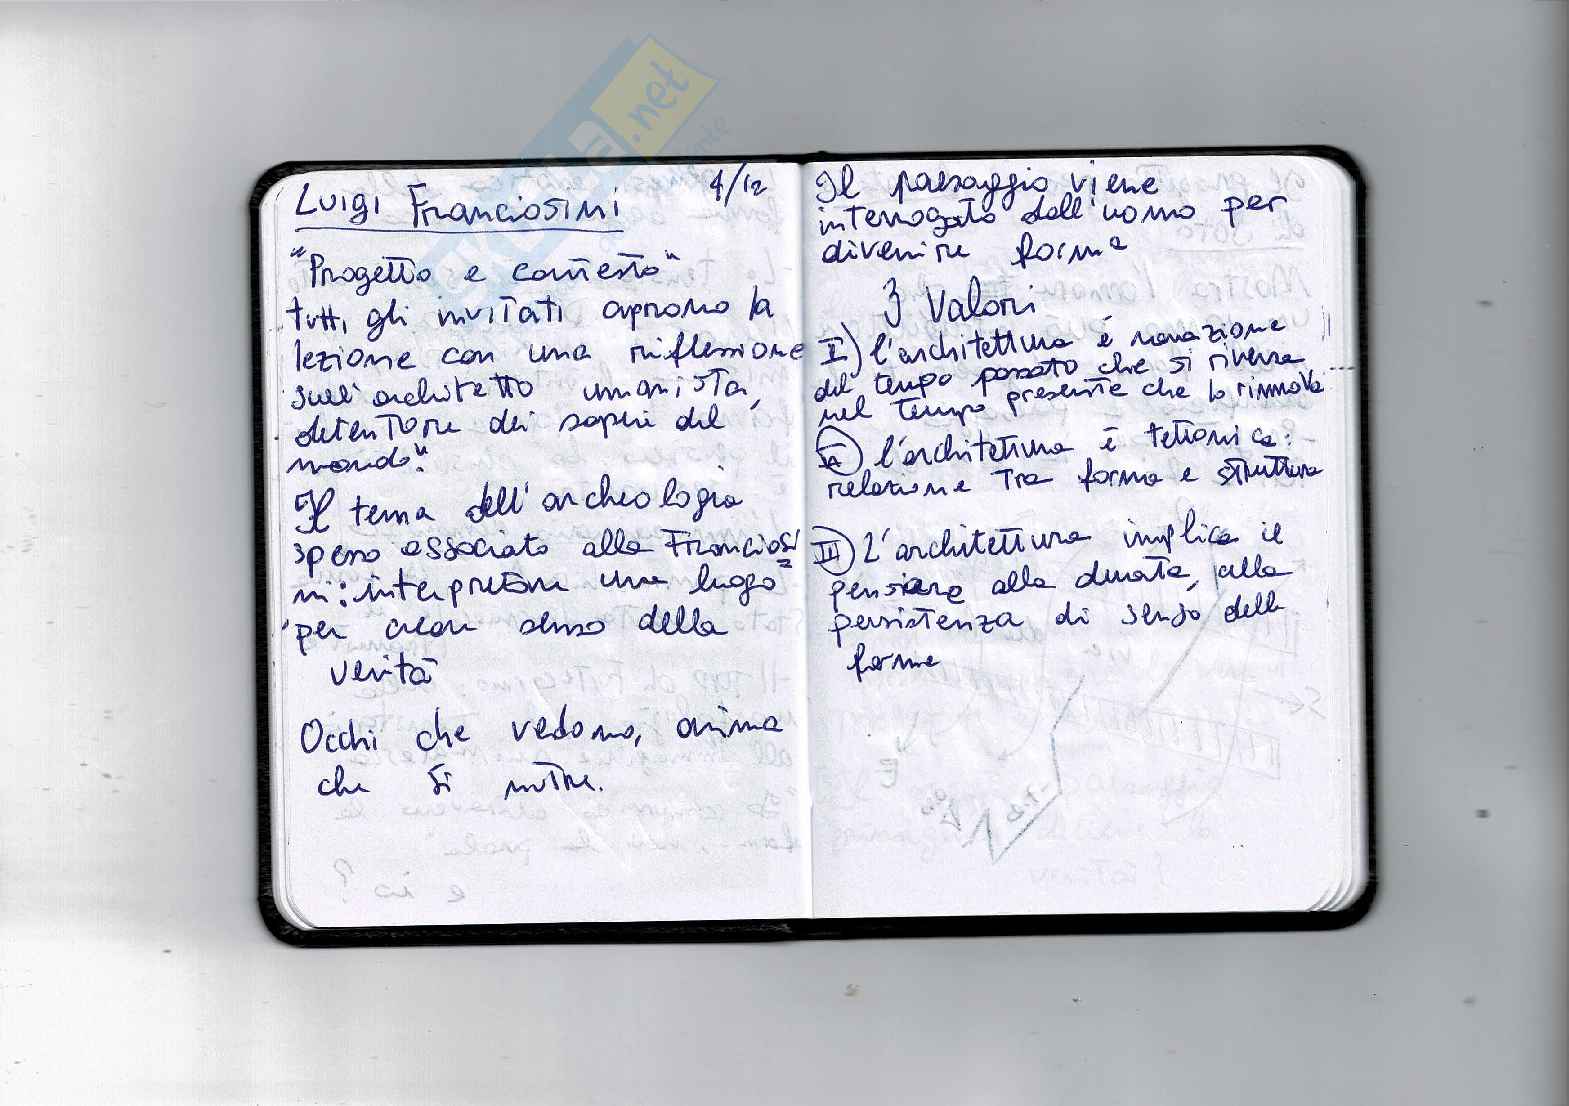 Luigi Franciosini
4/12
"Progetto e contesto"
tutti gli invitati aprono la
lezione con una riflessione
sull'architetto umanista,
detentore dei saperi del
mondo".
Il tema dell'archeologia
spesso associato alla Franciosi
ni: interpretare una luogo
per creare senso della
verità
Occhi che vedono, anima
che si nutre.
Il paesaggio viene
interrogato dall'uomo per
divenire forma
3 Valori
I) l'architettura è narrazione
del tempo passato che si riversa
nel tempo presente che lo rinnova
II) l'architettura è tettonica:
relazione tra forma e struttura
III) L'architettura implica il
pensare alla durata, alla
persistenza di senso delle
forme
.net